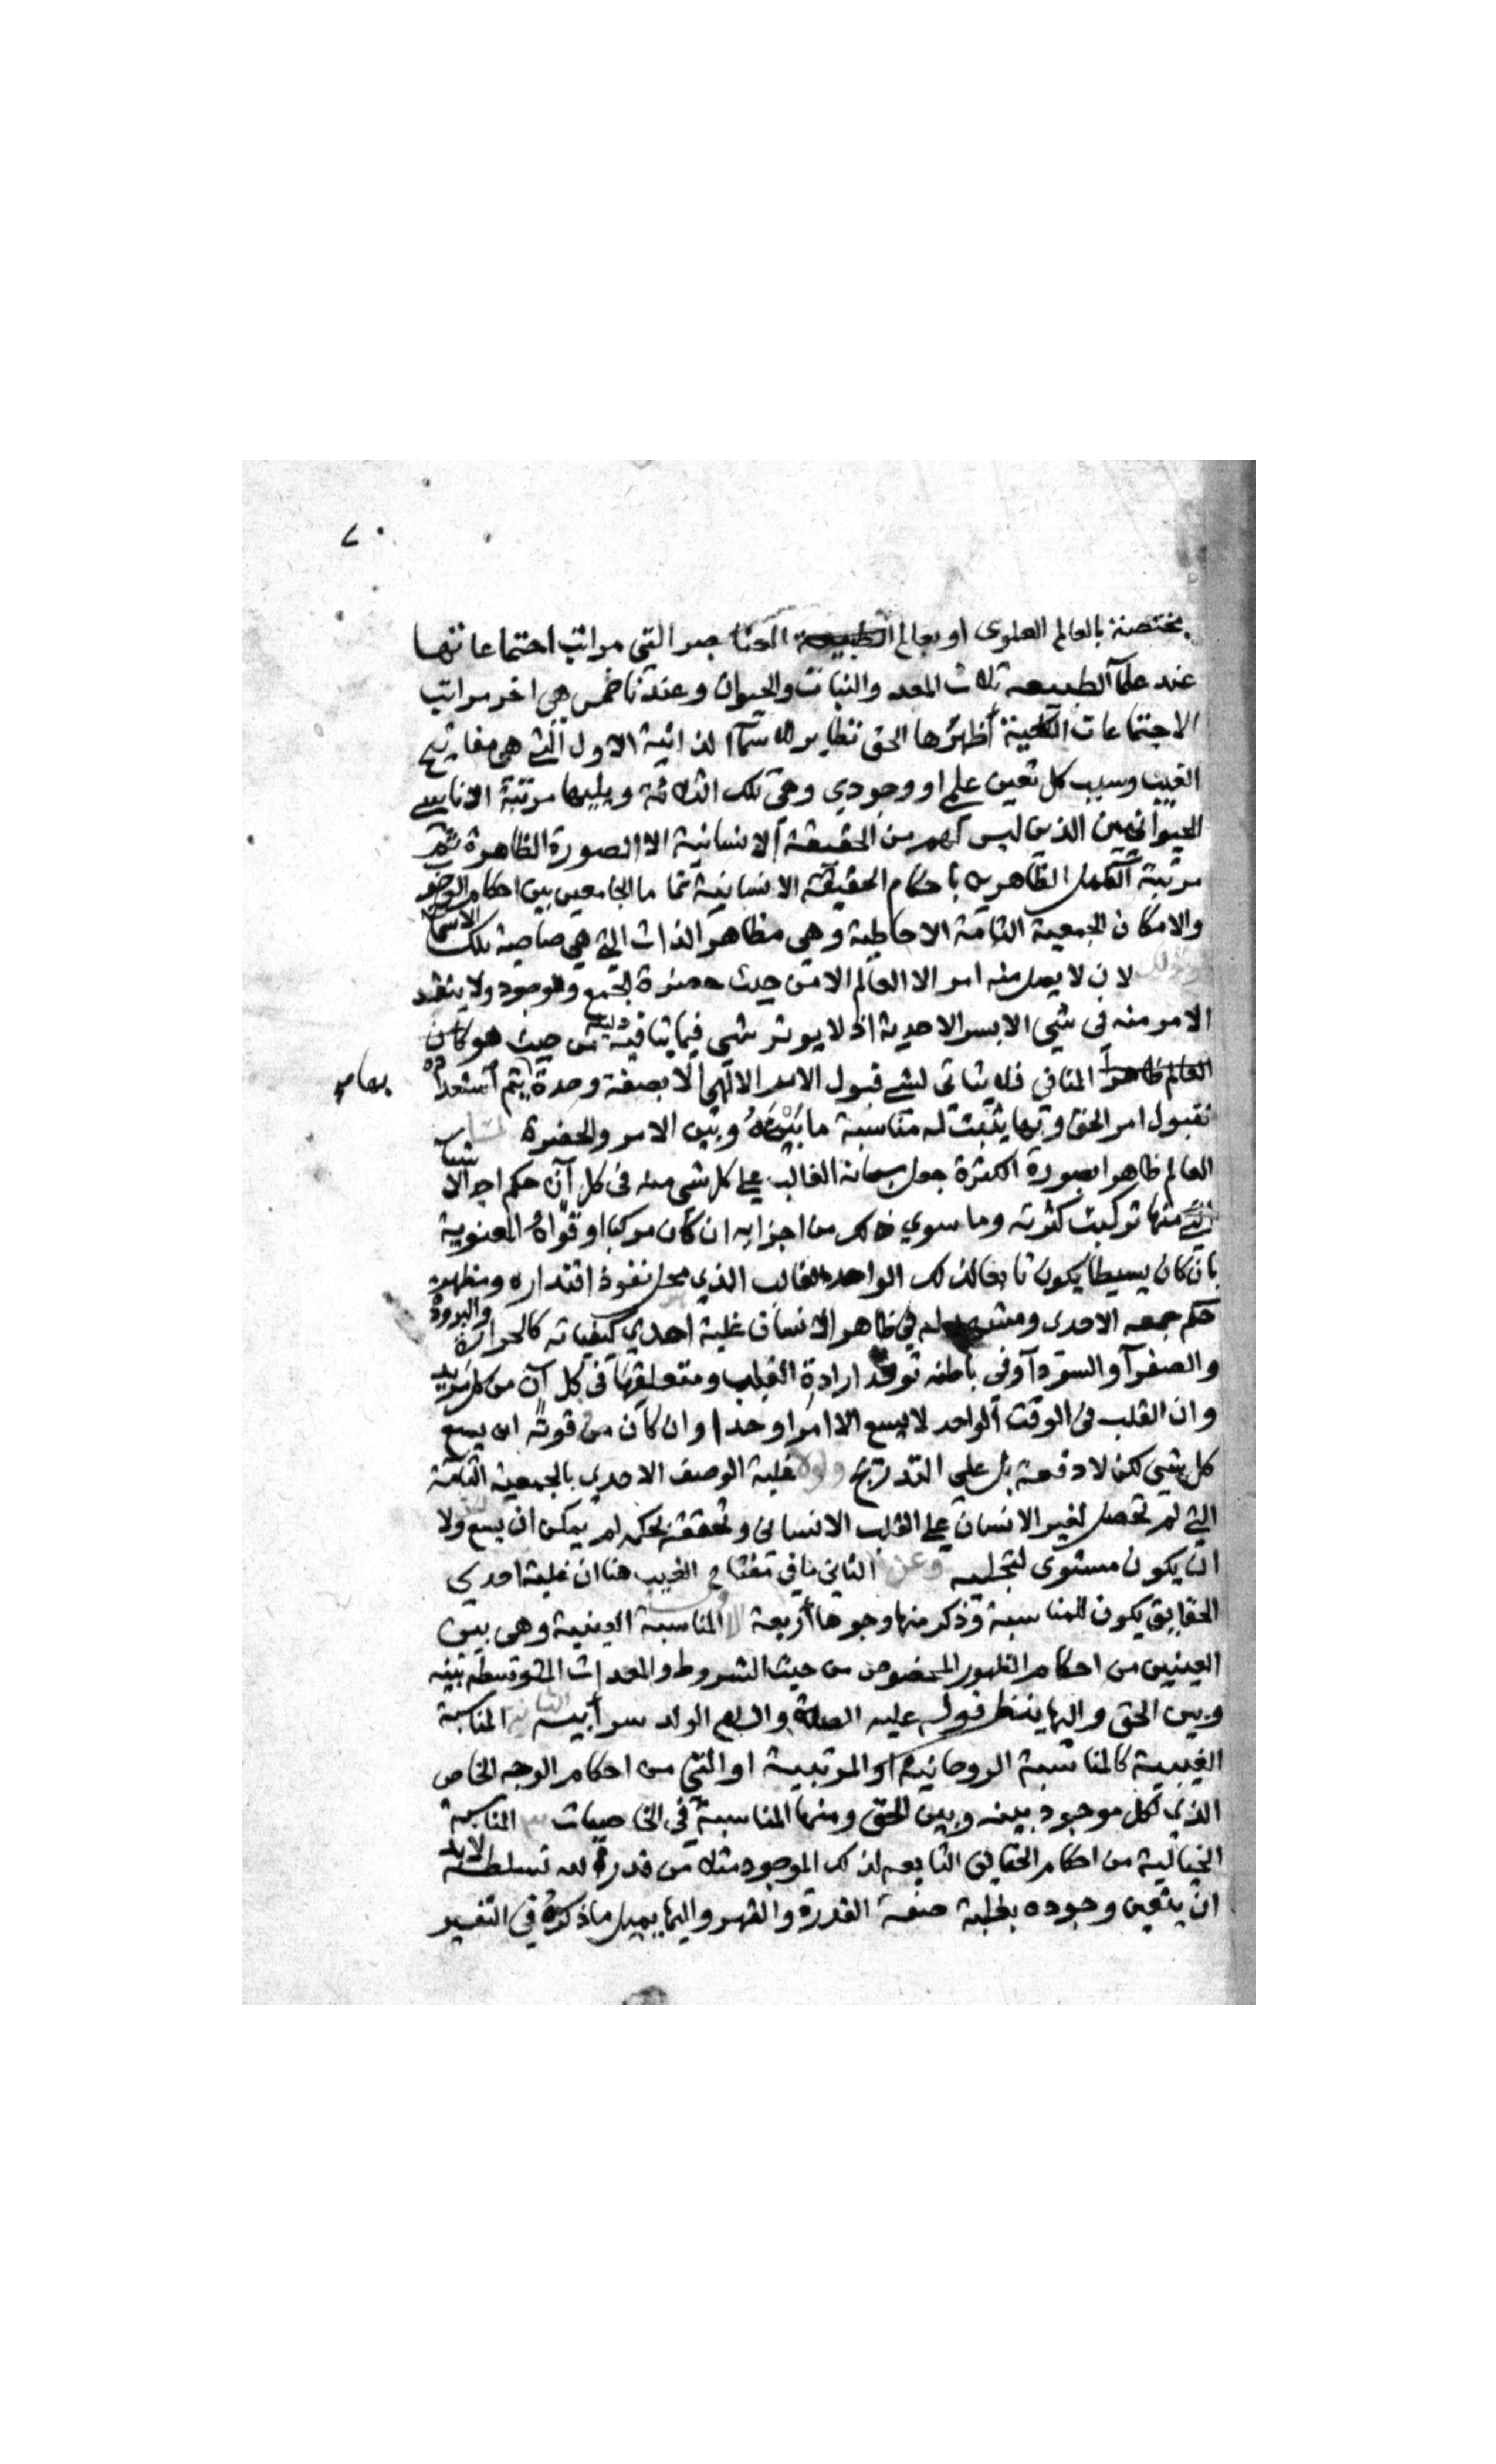 ٧٠
مختصة بالعالم العلوى او بعالم الطبيعة العناصر التى مراتب اجتماعاتها
عند علمآ الطبيعه ثلاث المعدن والنبات والحيوان وعندنا خمس هى اخر مراتب
الاجتماعات الكلية أظهرها الحق نظاير للاسمآ الذاتية الاول التى هى مفاتيح
الغيب وسبب كل تعين علمى او وجودي وهى تلك الثلاثة ويليها مرتبة الاناسى
الحيوانيين الذين ليس لهم من الحقيقة الانسانية الا الصورة الظاهرة ثم
مرتبة الكمل الظاهرين باحكام الحقيقة الانسانية تماما الجامعين بين احكام الوجوب
والامكان الجمعية التامة الاحاطية وهى مظاهر الذات التى هى صاحبة تلك الاسما
وذلك لان لا يصل منه امر الا العالم الا من حيث حضرة الجمع والوجود ولا ينفذ
الامر منه فى شي الا بسر الاحدية اذ لا يوثر شى فيما ينافيه من حيث هو كان
العالم ظاهرا المنافى فلا يتاتى لشى قبول الامر الالهى الا بصفة وحدة يتم استعداده
لقبول امر الحق وبها يثبت له مناسبة ما بينه وبين الامر والحضرة
العالم ظاهرا بصورة الكثرة جعل سبحانه الغالب على كل شى منه فى كل آن حكم احد الاشيا
التى منها تركبت كثرته وما سوي ذلك من اجزايه ان كان مركبا او قواه المعنوية
بان كان بسيطا يكون تابعا لذلك الواحد الغالب الذي محل نفوذ اقتداره ومظهر
حكم جمعه الاحدى ومشهد له فى ظاهر الانسان غلبة احدي كيفياته كالحرارة والبرودة
والصفرآ والسودآ وفى باطنه توحد ارادة القلب ومتعلقها فى كل آن من كل مريد
وان القلب فى الوقت الواحد لا يسع الا امرا وحدا وان كان من قوته ان يسع
كل شى لكن لا دفعة بل على التدريج ولولا غلبة الوصف الاحدي بالجمعية التامة
التى لم تحصل لغير الانسان على القلب الانسانى وتحققه بحكمه لم يمكن ان يسع ولا
ان يكون مستوى لتجليه وعن الثانى ما فى مفتاح الغيب هنا ان غلبة احدي
الحقايق يكون للمناسبة وذكر منها وجوها أربعة المناسبة العينية وهى بين
العينين من احكام الظهور المخصوص من حيث الشروط والمعدات المتوسطة بينه
وبين الحق واليها ينظر قوله عليه الصلاة والسلام الولد سر أبيه الثانية المناسبة
الغيبية كالمناسبة الروحانية او المرتبية او التى من احكام الوجه الخاص
الذي لكل موجود بينه وبين الحق ومنها المناسبة فى الخاصيات ٣ المناسبة
الخيالية من احكام الحقايق التابعه لذلك الموجود مثلا من قدرة له تسلط لابد
ان يتعين وجوده بغلبة صفة القدرة والقهر واليها يميل ما ذكره فى التفسير